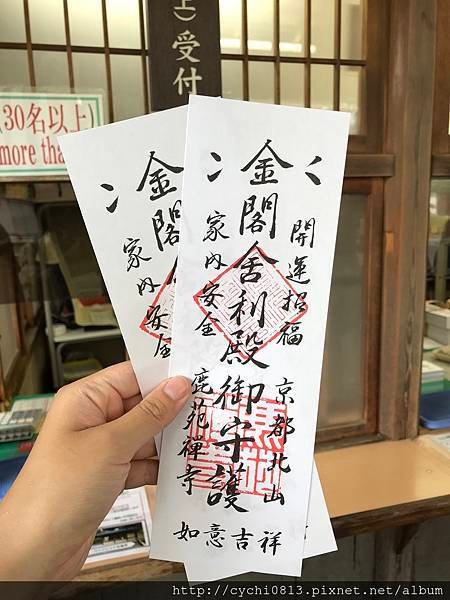 上)受付
(30名以上)
more tha
金閣舍利殿御守護
開運招福
家內安全
京都北山
鹿苑禪寺
如意吉祥
金閣
家內安全
http://cychi0813.pixnet.net/album